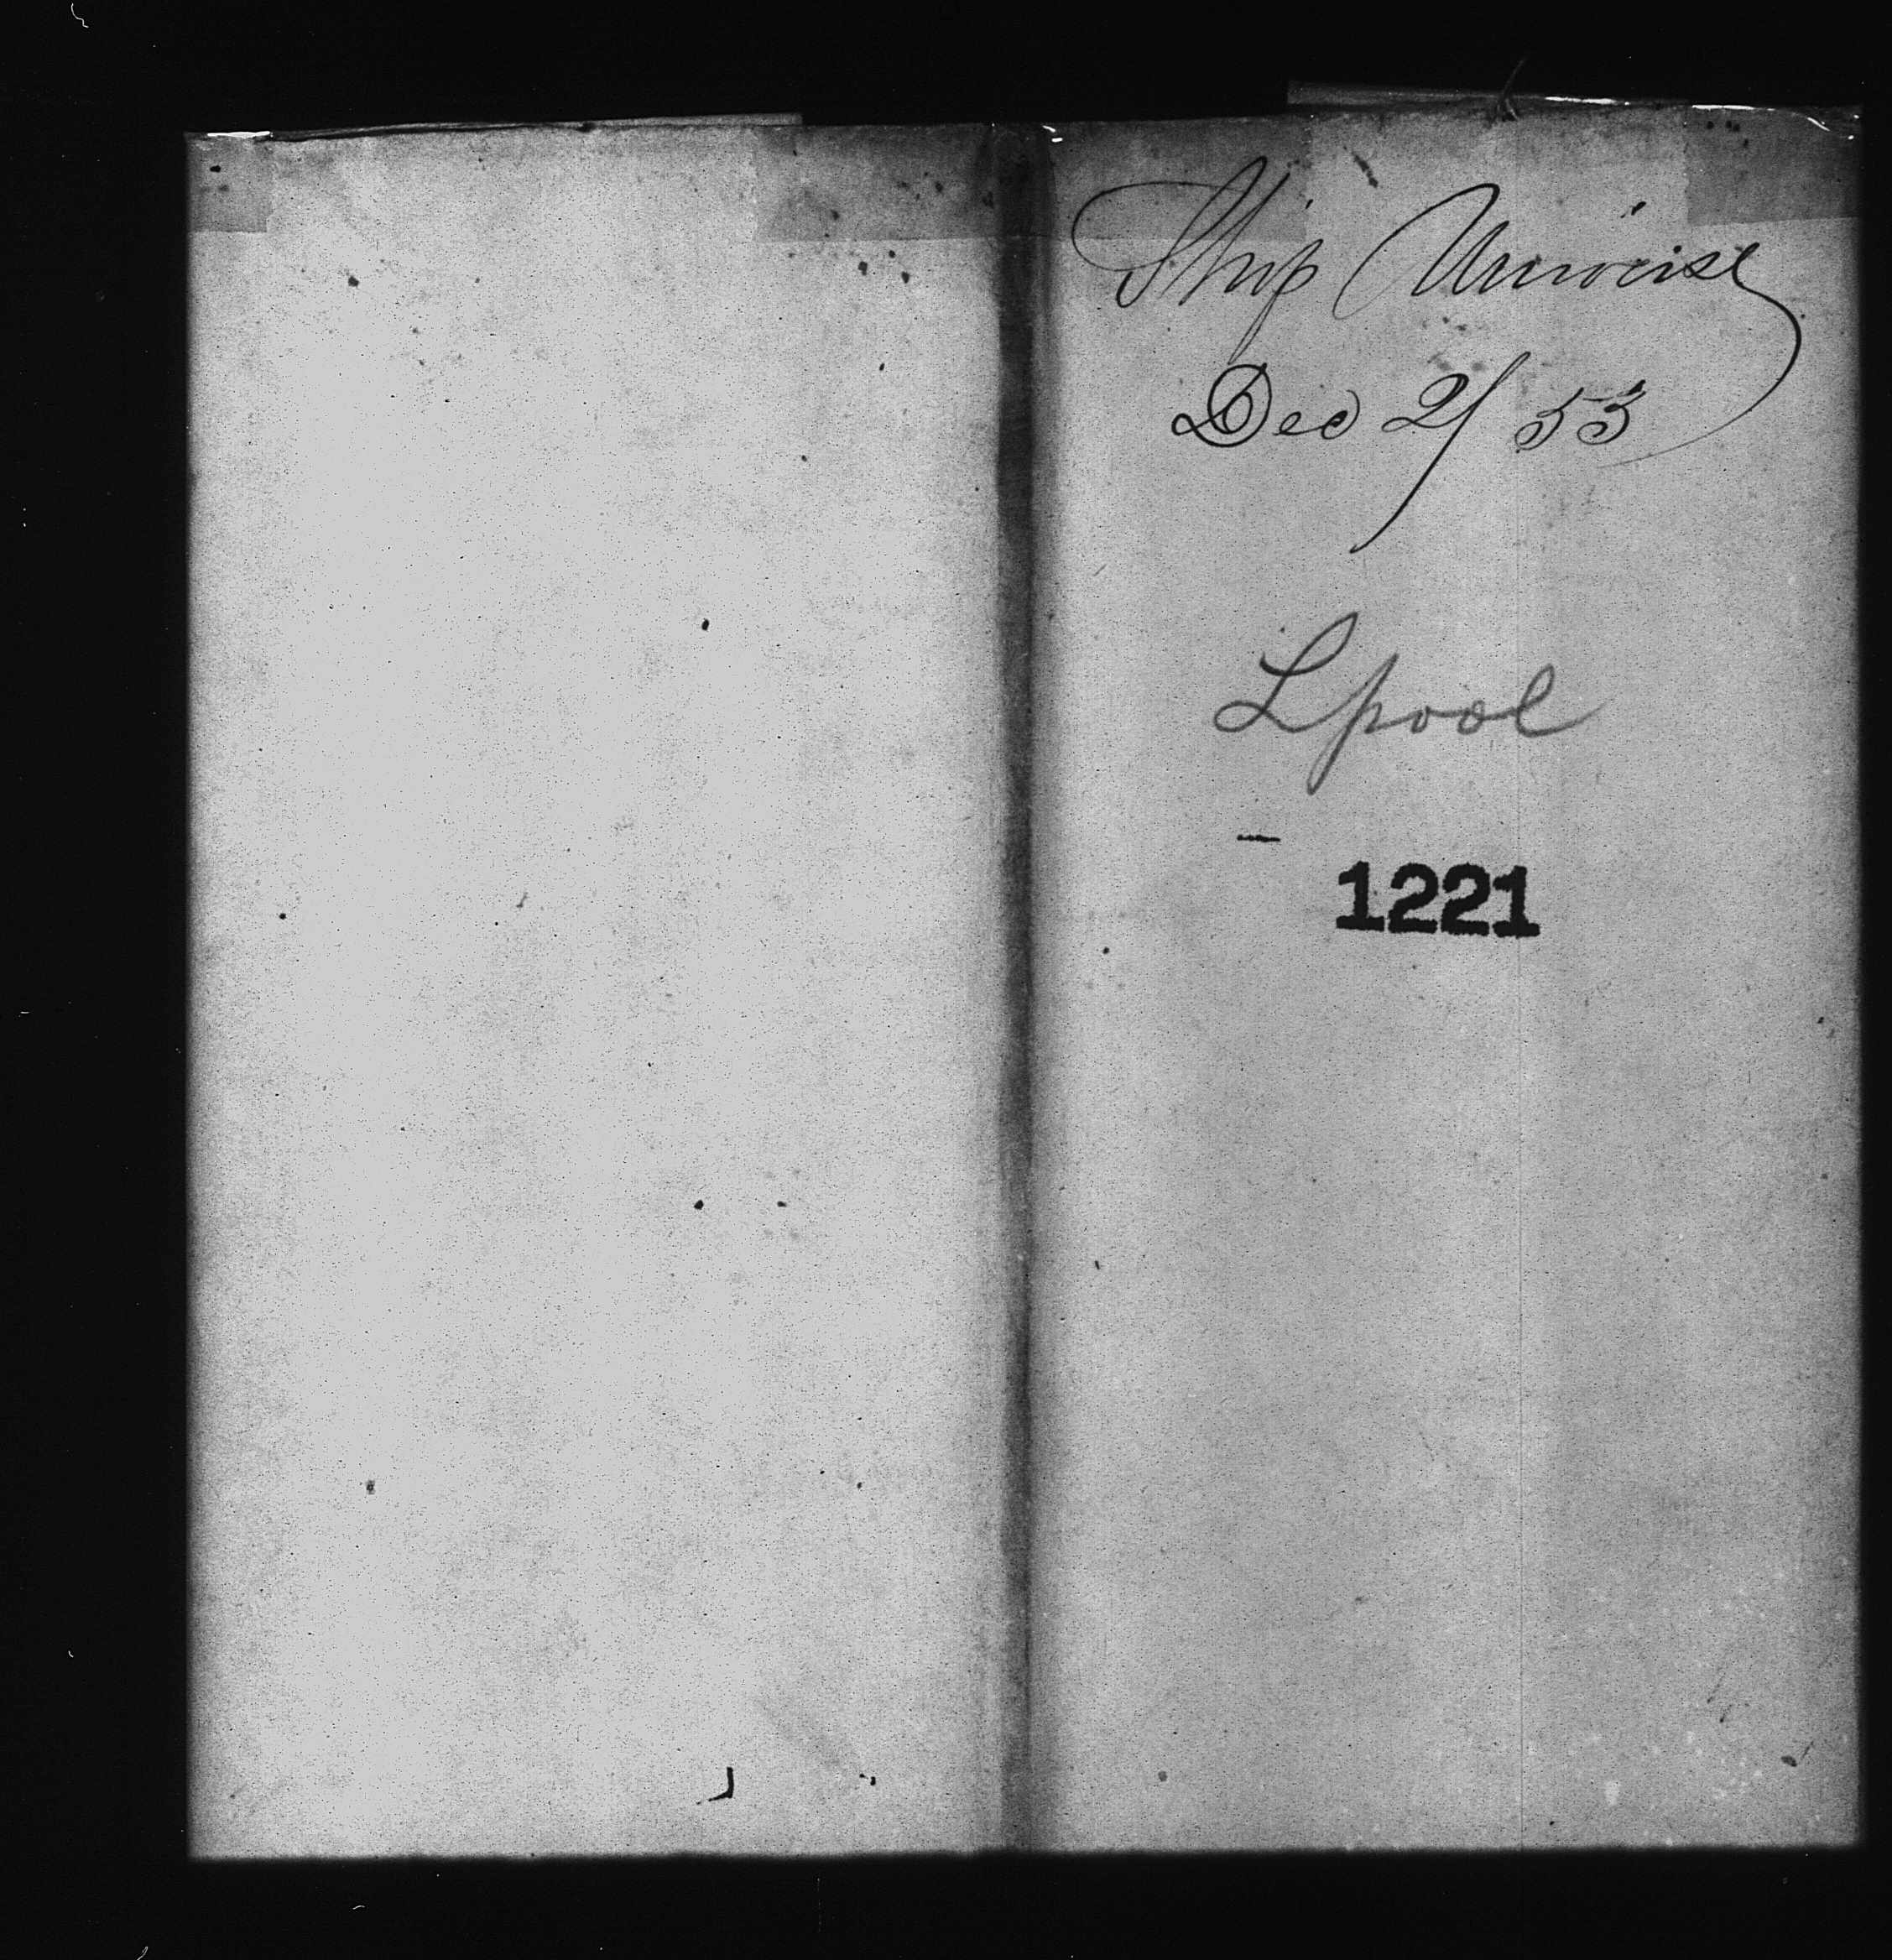 Ship Universe
Dec 2/53
Lpool
1221